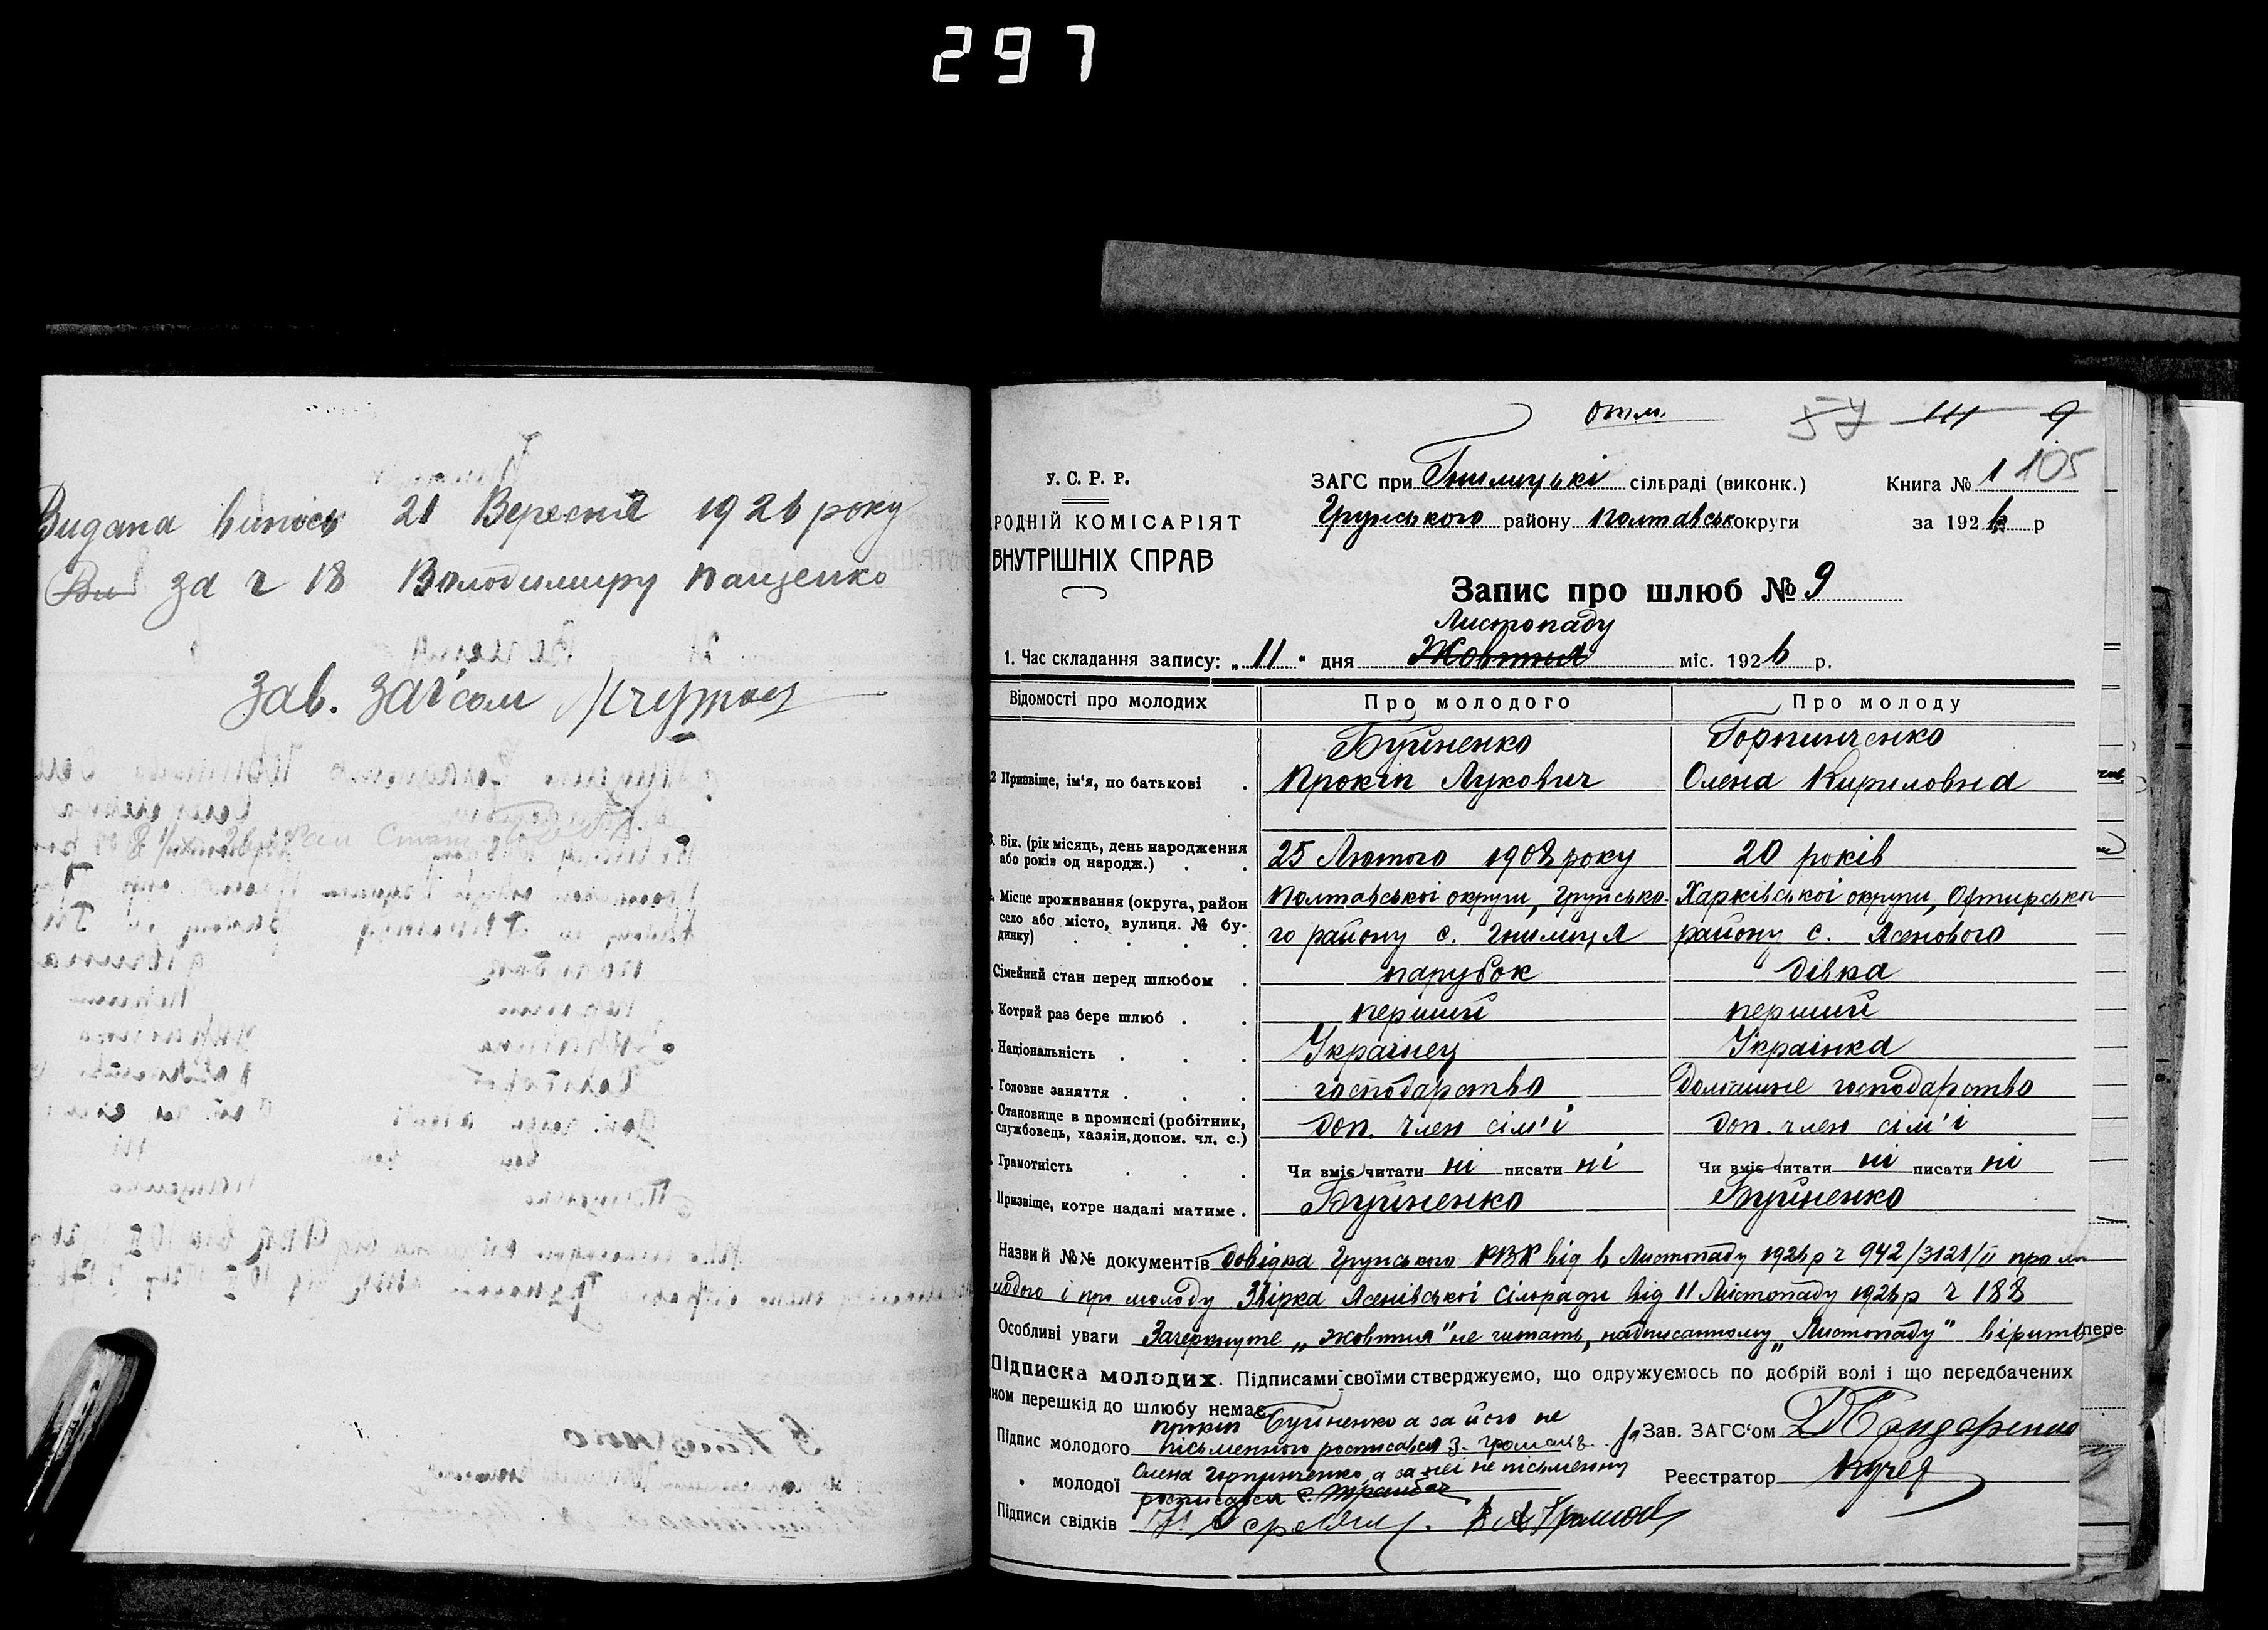 297
Видана випись 21 Вересня 1926 року
за ч 18 Володимиру Пащенко
Зав. Загсом
отм.
57 111 9
105
У. С. Р. Р.
РОДНІЙ КОМІСАРІЯТ
ВНУТРІШНІХ СПРАВ
ЗАГС при Гнилицькі сільраді (виконк.)
Книга № 1
Грунського району Полтавськ округи
за 1926 р
Запис про шлюб № 9
Листопаду
1. Час складання запису: „ 11 " дня Жовтня міс. 1926 р.
Відомості про молодих Про молодого Про молоду
Буйненко Горпинченко
2 Призвіще, ім'я, по батькові . Прокіп Лукович Олена Кириловна
. Вік. (рік місяць, день народження або років од народж.) . . 25 Лютого 1908 року 20 років
. Місце проживання (округа, район Полтавської округи, Грунсько- Харківської округи, Охтирсько
село або місто, вулиця. № бу-динку) . . . . го району с. Гнилиця району с. Ясенового
Сімейний стан перед шлюбом . парубок дівка
. Котрий раз бере шлюб . . перший перший
. Національність . . . Українец Українка
. Головне заняття . . . господарство домашнє господарство
. Становище в промислі (робітник, службовець, хазяін, допом. чл. с.) доп. член сім'ї доп. член сім'ї
. Грамотність . . . Чи вміє читати ні писати ні Чи вміє читати ні писати ні
. Призвіще, котре надалі матиме . Буйненко Буйненко
Назви й №№ документів Довідка Грунського РВК від 6 Листопаду 1926 р ч 942/3121/II про мо
лодого і про молоду Звірка Ясенівської Сільради від 11 Листопаду 1926 р ч 188
Особливі уваги Зачеркнуте „Жовтня" не читать, надписанному „Листопаду" вірить
пере-
Підписка молодих. Підписами своїми стверджуємо, що одружуємось по добрій волі і що передбачених
ном перешкід до шлюбу немає.
Прокіп Буйненко а за його не
Підпис молодого письменного росписався З.
Зав. ЗАГС'ом
Олена Горпинченко, а за неї не письменну
" молодої росписався С.
Реєстратор Кучер
Підписи свідків